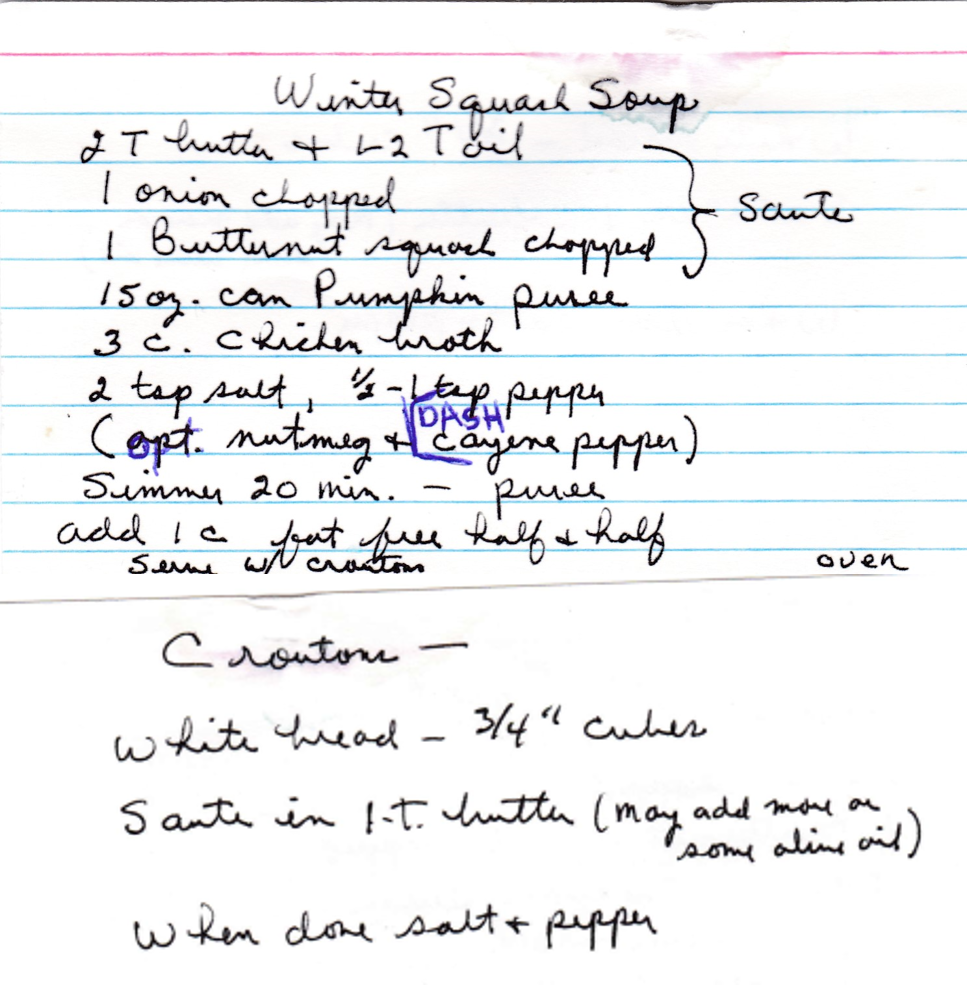 Winter Squash Soup
2 T butter + 1-2 T oil
1 onion chopped
1 Butternut squash chopped
Saute
15 oz. can Pumpkin puree
3 c. Chicken broth
2 tsp salt, 1/2 - 1 tsp pepper
(opt. nutmeg + DASH cayene pepper)
Simmer 20 min. - puree
add 1 c fat free half & half
Serve w/ croutons
over
Croutons —
White bread - 3/4" cubes
Saute in 1-T. butter (may add more or
some olive oil)
When done salt + pepper